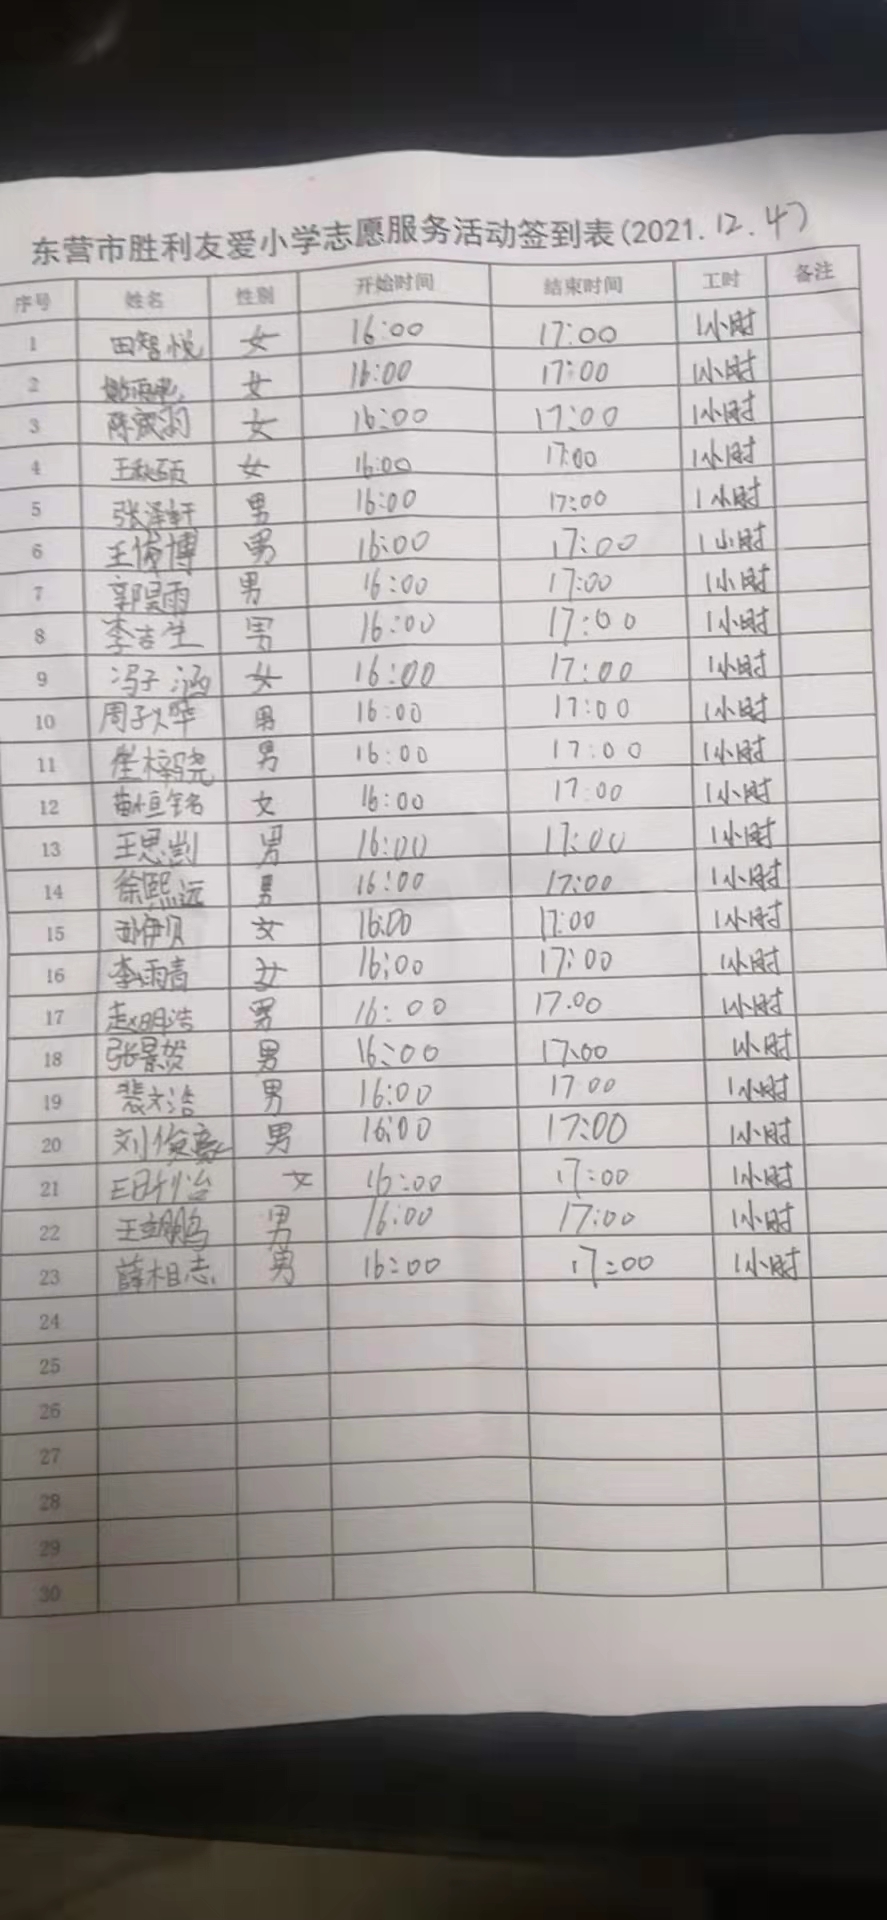 东营市胜利友爱小学志愿服务活动签到表(2021.12.4)
序号 姓名 性别 开始时间 结束时间 工时 备注
1 田智悦 女 16:00 17:00 1小时
2 女 16:00 17:00 1小时
3 陈宬羽 女 16:00 17:00 1小时
4 王秋硕 女 16:00 17:00 1小时
5 张泽轩 男 16:00 17:00 1小时
6 王俊博 男 16:00 17:00 1小时
7 郭昊雨 男 16:00 17:00 1小时
8 李吉生 男 16:00 17:00 1小时
9 冯子涵 女 16:00 17:00 1小时
10 周子烨 男 16:00 17:00 1小时
11 崔梓骁 男 16:00 17:00 1小时
12 苗恒铭 女 16:00 17:00 1小时
13 王思澍 男 16:00 17:00 1小时
14 徐熙远 男 16:00 17:00 1小时
15 伊贝 女 16:00 17:00 1小时
16 李雨青 女 16:00 17:00 1小时
17 赵明浩 男 16:00 17:00 1小时
18 张景贺 男 16:00 17:00 1小时
19 裴文浩 男 16:00 17:00 1小时
20 刘俊豪 男 16:00 17:00 1小时
21 女 16:00 17:00 1小时
22 王翊鹏 男 16:00 17:00 1小时
23 薛相志 男 16:00 17:00 1小时
24
25
26
27
28
29
30